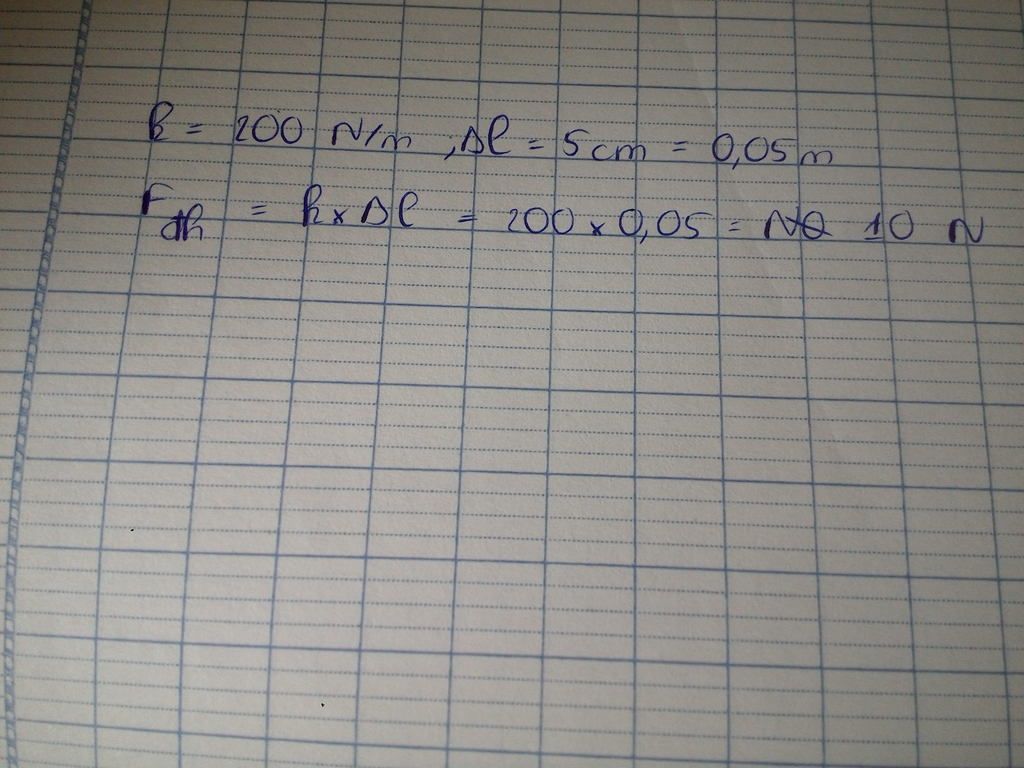 k = 200 N/m ; Δl = 5 cm = 0,05 m
Fđh = k x Δl = 200 x 0,05 = 10 N